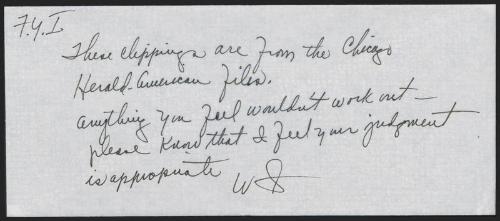 F.Y.I
These clippings are from the Chicago
Herald-American files.
Anything you feel wouldn't work out —
please know that I feel your judgment
is appropriate